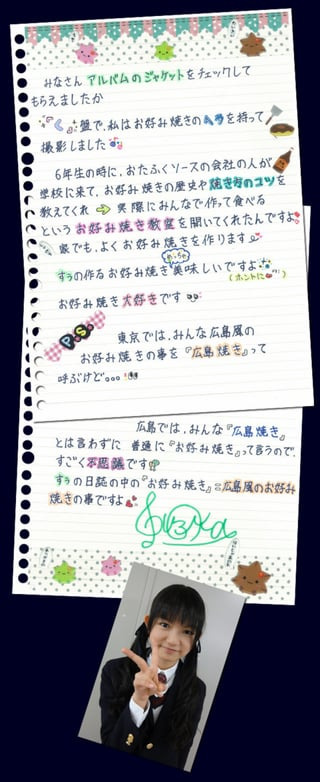 みなさん アルバムのジャケットをチェックして
もらえましたか
盤で、私はお好み焼きのヘラを持って
撮影しました
6年生の時に、おたふくソースの会社の人が
学校に来て、お好み焼きの歴史や焼き方のコツを
教えてくれ ⇨ 実際にみんなで作って食べる
という お好み焼き教室を開いてくれたんですよ
家でも、よくお好み焼きを作ります
めっちゃ
すぅの作るお好み焼き美味しいですよ
(ホントに
お好み焼き大好きです
P.S.
東京では、みんな広島風の
お好み焼きの事を『広島焼き』って
呼ぶけど。。。
広島では、みんな『広島焼き』
とは言わずに 普通に『お好み焼き』って言うので、
すごく不思議です
すぅの日誌の中の『お好み焼き』=広島風のお好み
焼きの事ですよ